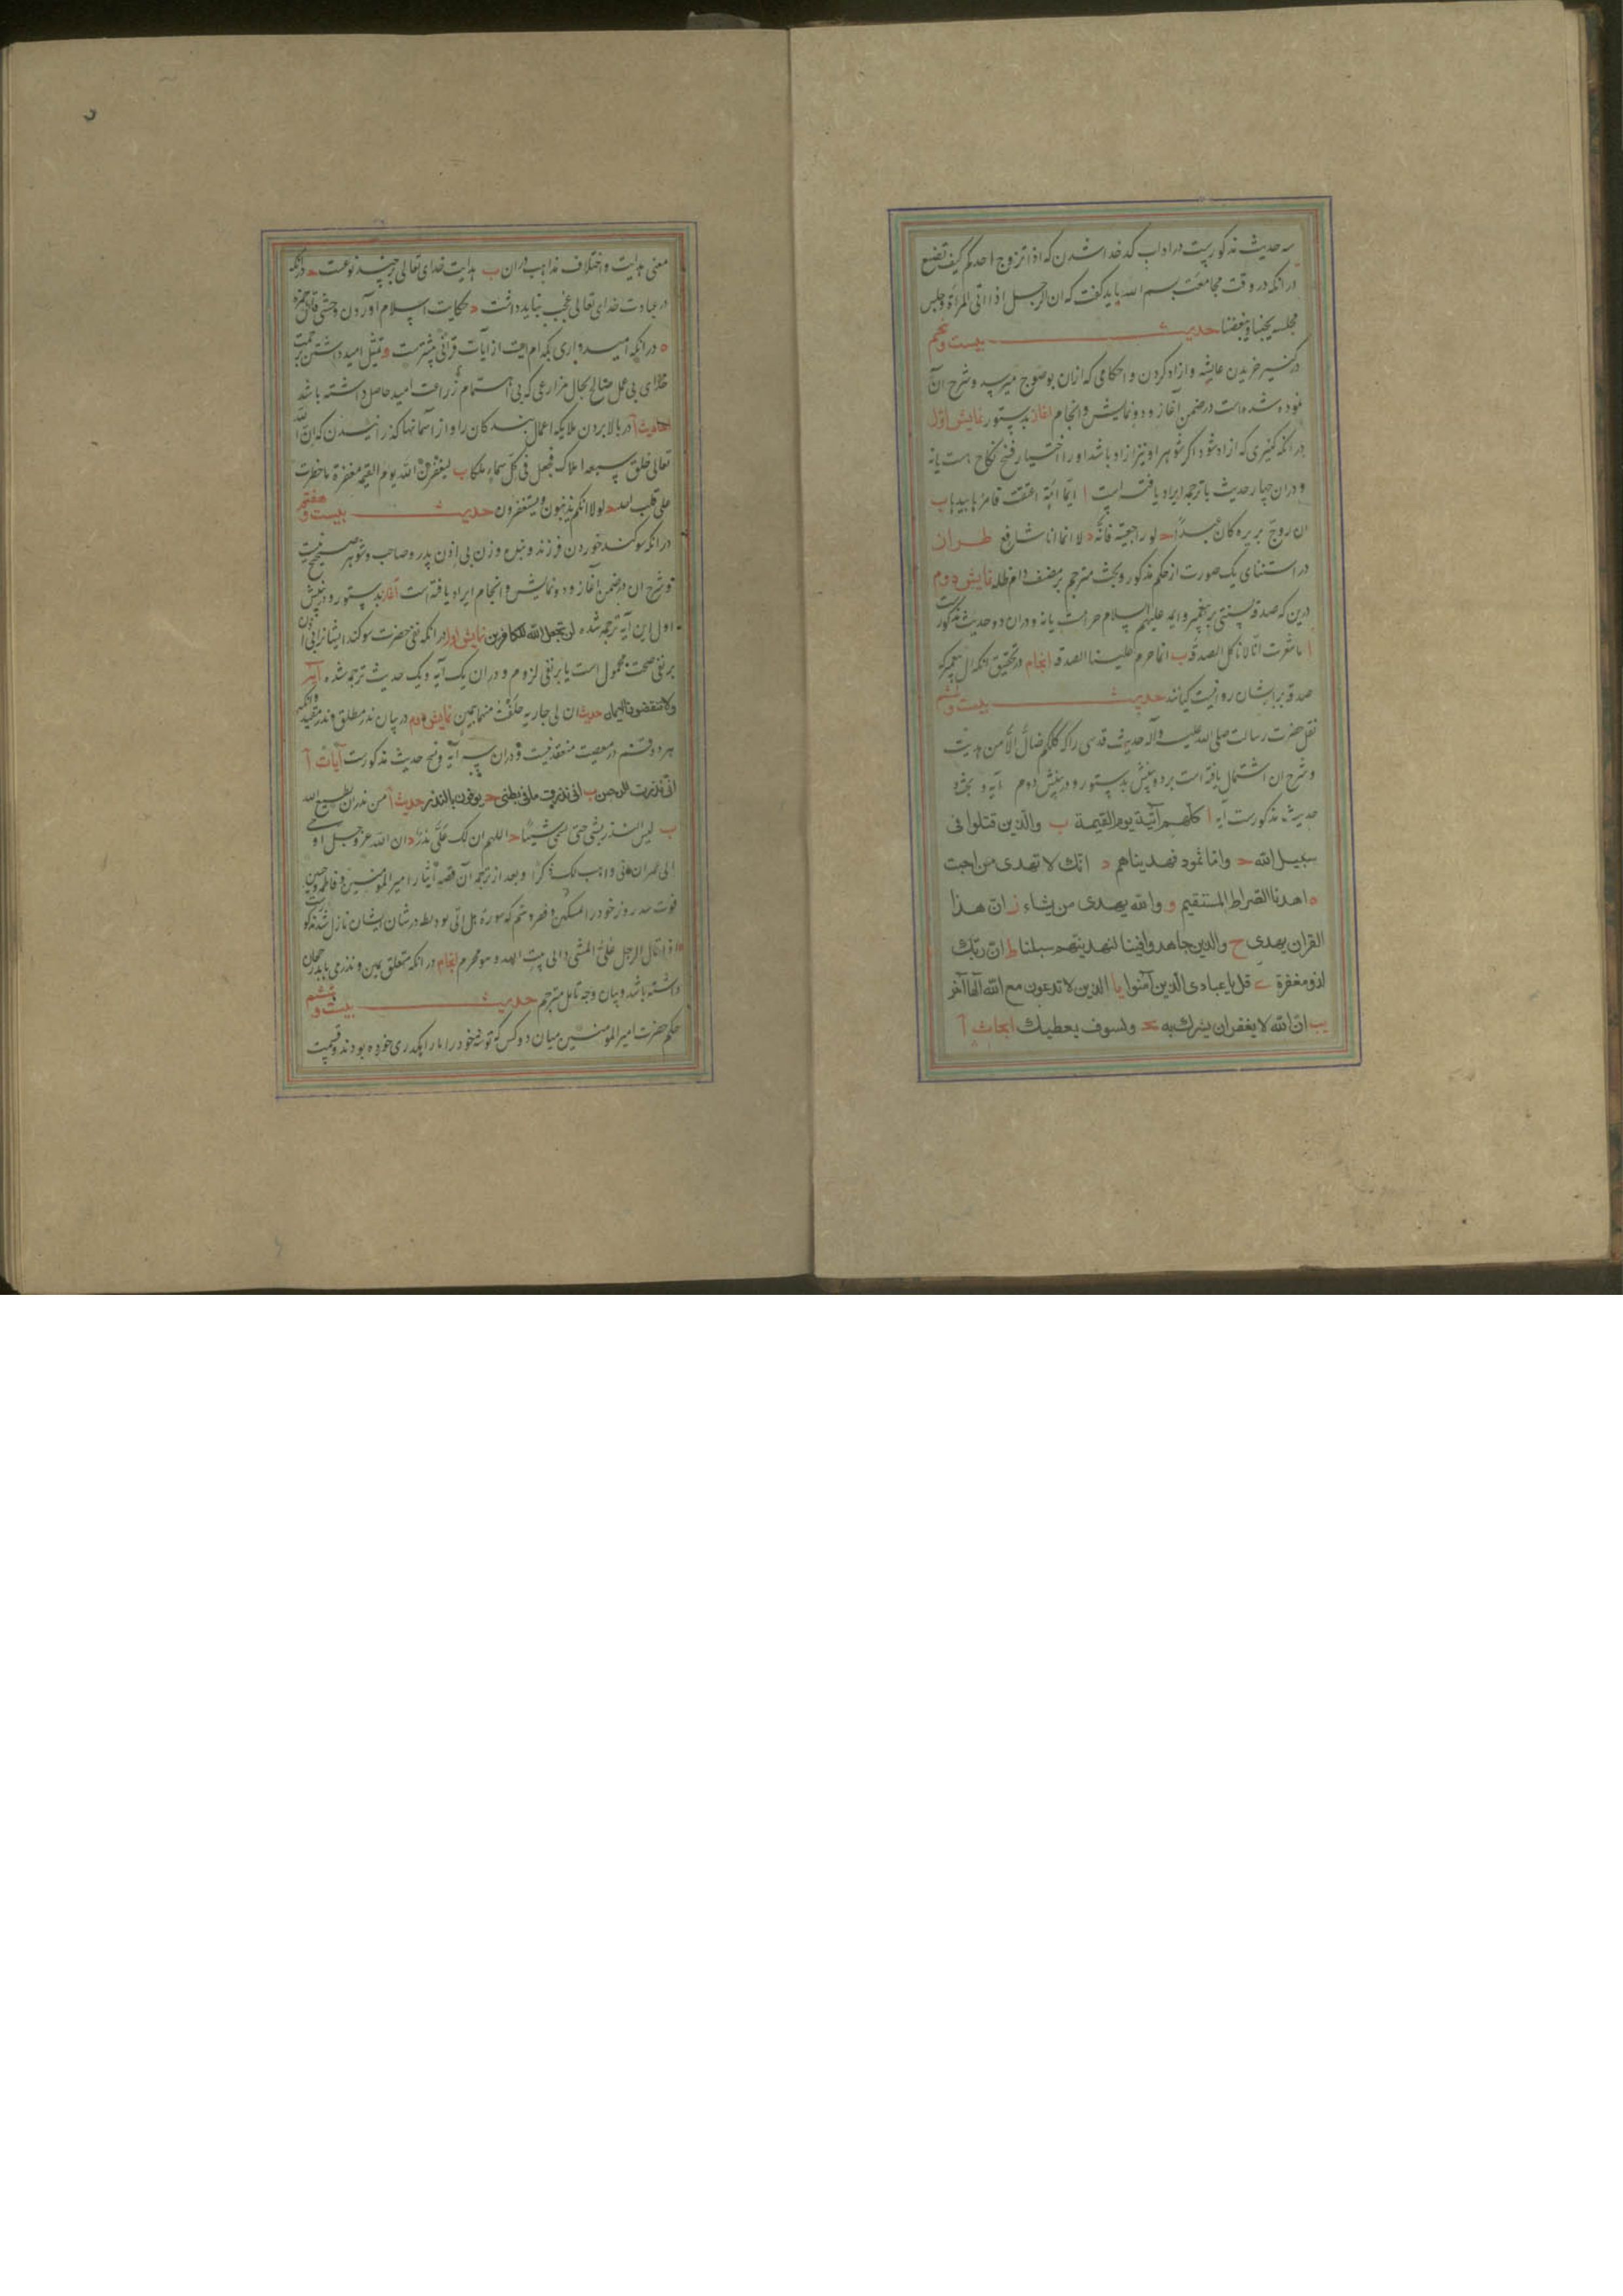 سه حدیث مذکورست در اداب کدخدا شدن که اذا تزوج احدکم کیف تصنع
در انکه در وقت مجامعت بسم الله باید کفت که ان الرجل اذا اتی المراة و جلس
مجلسه یحبنا و یبغضنا حدیث بیست و پنجم
در کنیز خریدن عایشه و ازاد کردن و احکامی که ازان بوضوح میرسد و شرح آن
نموده شده است در ضمن آغاز و دو نمایش و انجام اغاز بدستور نمایش اول
در انکه کنیزی که ازاد شود اکر شوهر او نیز ازاد باشد او را اختیار فسخ نکاح هست یا نه
و دران چهار حدیث با ترجمه ایراد یافته است ا ایما امة اعتقت فامرها بیدها ب
ان زوج بریره کان عبدا ح لو راجعیته فانه د لا انما انا شافع طراز
در استثنای یک صورت از حکم مذکور و بحث مترجم بر مصنف دام ظله نمایش دوم
درین که صدقه سنتی بر پیغمبر و ایمه علیهم السلام حرامست یا نه و دران دو حدیث مذکورست
ا ما شعرت انا لا ناکل الصدقه ب انما حرم علینا الصدقه انجام در تحقیق انکه ال پیغمبر که
صدقه بر ایشان روا نیست کیانند حدیث بیست و ششم
نقل حضرت رسالت صلی الله علیه و آله حدیث قدسی را که کلکم ضال الا من هدیت
و شرح ان اشتمال یافته است بر دو بینش بدستور و در بینش دوم آیه و
حدیث مذکورست آیه ا کلهم آتیه یوم القیمة ب والذین قتلوا فی
سبیل الله ح واما ثمود فهدیناهم د انک لا تهدی من احببت
ه اهدنا الصراط المستقیم و والله یهدی من یشاء ز ان هذا
القران یهدی ح والذین جاهدوا فینا لنهدینهم سبلنا ط ان ربک
لذو مغفرة ی قل یا عبادی الذین آمنوا یا الذین لا تدعون مع الله الها آخر
یب ان الله لا یغفر ان یشرک به یح ولسوف یعطیک ابحاث آ
معنی هدایت و اختلاف مذاهب دران ب هدایت خدای تعالی بر چند نوعست ح در انکه
در عبادت خدای تعالی عجب نباید داشت د حکایت اسلام اوردن وحشی قاتل حمزه
ه در انکه امیدواری بکدام ایت از آیات قرآنی بیشترست و تمثیل امید داشتن برحمت
خدای بی عمل صالح بحال مزارعی که بی اهتمام زراعت امید حاصل داشته باشد
احادیث آ در بالا بردن ملایکه اعمال بندکان را و از آسمانها کذرانیدن که ان الله
تعالی خلق سبعه املاک فجعل فی کل سماء ملکا ب لیغفرن الله یوم القیمه مغفرة ما خطرت
علی قلب احد ح لولا انکم تذنبون و یستغفرون حدیث بیست و هفتم
در انکه سوکند خوردن فرزند و بنده و زن بی اذن پدر و صاحب و شوهر صحیح نیست
و شرح ان در ضمن آغاز و دو نمایش و انجام ایراد یافته است آغاز بدستور و در بینش
اول این آیه ترجمه شده لن یجعل الله للکافرین نمایش اول در انکه نفی حضرت سوکند ایشانرا بی اذن
بر نفی صحت محمول است یا بر نفی لزوم و دران یک آیه و یک حدیث ترجمه شده آیه
ولا تنقضوا الایمان حدیث ان لی جاریه حلفت منها بیمین نمایش دوم در بیان نذر مطلق و نذر مقید و انکه
هر دو قسم در معصیت منعقد نیست و دران سه آیه و پنج حدیث مذکورست آیات آ
انی نذرت للرحمن ب انی نذرت ما فی بطنی ح یوفون بالنذر حدیث آ من نذر ان یطیع الله
ب لیس النذر بشی حتی یسمی شیئا ح اللهم ان لک علی نذر د ان الله عز و جل اوحی
الی عمران انی واهب لک ذکرا و بعد از ترجمه آن قصه ایثار امیر المومنین و فاطمه و حسنین
قوت سه روز خود را بمسکین و
اذا قال الرجل علی المشی الی بیت الله و هو محرم انجام در انکه متعلق یمین و نذر می باید رجحان
داشته باشد و بیان وجه تامل مترجم حدیث بیست و هشتم
حکم حضرت امیر المومنین میان دو کس که توشه خود را با رایکدری خورده بودند و قسمت